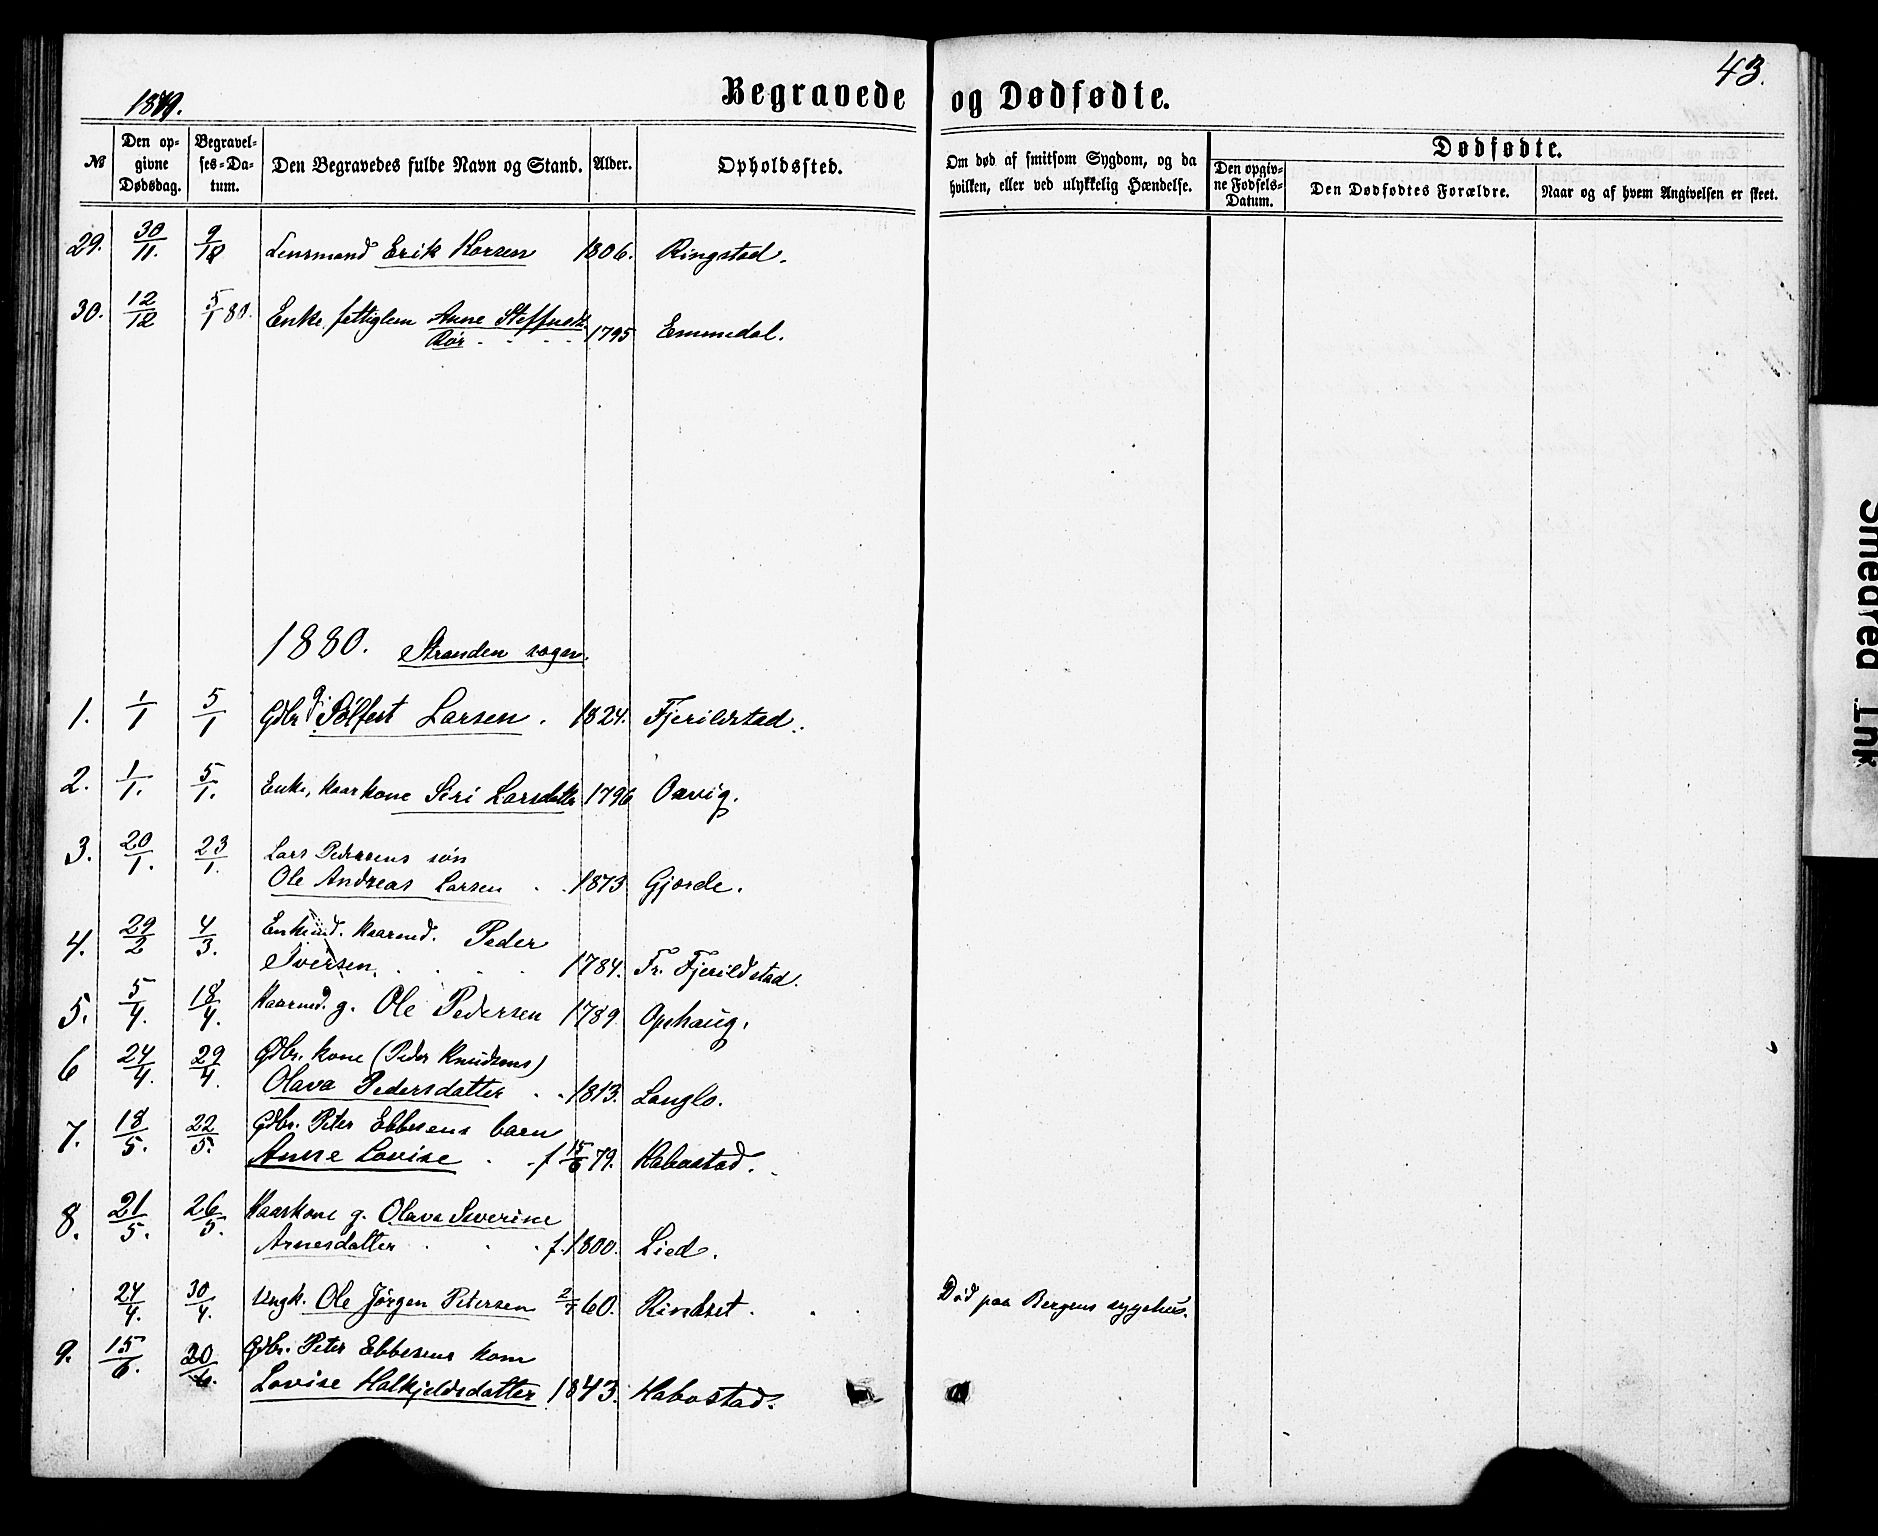 1879.
Begravede og Dødfødte.
43.
№
Den opgivne Dødsdag.
Begravelses-Datum.
Den Begravedes fulde Navn og Stand.
Alder.
Opholdssted.
Om død af smitsom Sygdom, og da hvilken, eller ved ulykkelig Hændelse.
Dødfødte.
Den opgivne Fødsels-Datum.
Den Dødfødtes Forældre.
Naar og af hvem Angivelsen er skeet.
29. 30/11. 9/12 Lensmand Erik Korsen 1806. Ringstad.
30. 12/12 5/1 80. Enke, fattiglem Anne Steffensd.
Rør 1795 Emmedal.
1880. Stranden sogn.
1. 1/1 5/1 Gdbr. g. Sölfest Larsen. 1824. Fjerildstad.
2. 1/1. 5/1. Enke, kaarkone Siri Larsdatter 1796 Oavig.
3. 20/1. 23/1. Lars Pedersens søn
Ole Andreas Larsen 1873 Gjærde.
4. 29/2 4/3. Enkemd. kaarmd. Peder
Iversen. 1784. Fr. Fjerildstad.
5. 5/4. 18/4. Kaarmd. g. Ole Pedersen 1789. Opshaug.
6 24/4. 29/4. Gdbr. kone (Peder Knudsens)
Olava Pedersdatter 1813. Langlo.
7. 18/5. 22/5. Gdbr. Peter Ebbesens barn
Anne Lovise f 15/6 79. Habostad.
8. 21/5. 26/5. Kaarkone g. Olava Severine
Arnesdatter f. 1800. Lied.
24/4. 30/4. Ungk. Ole Jørgen Petersen 2/7 60. Rindset. Død paa Bergens sygehus.
9. 15/6. 20/6. Gdbr. Peter Ebbesens kone
Lovise Halkjeldsdatter 1843. Habostad.
Smedred Ink